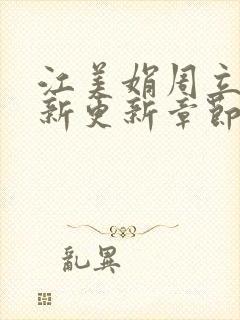 江美娟周立
新更新章節
亂異